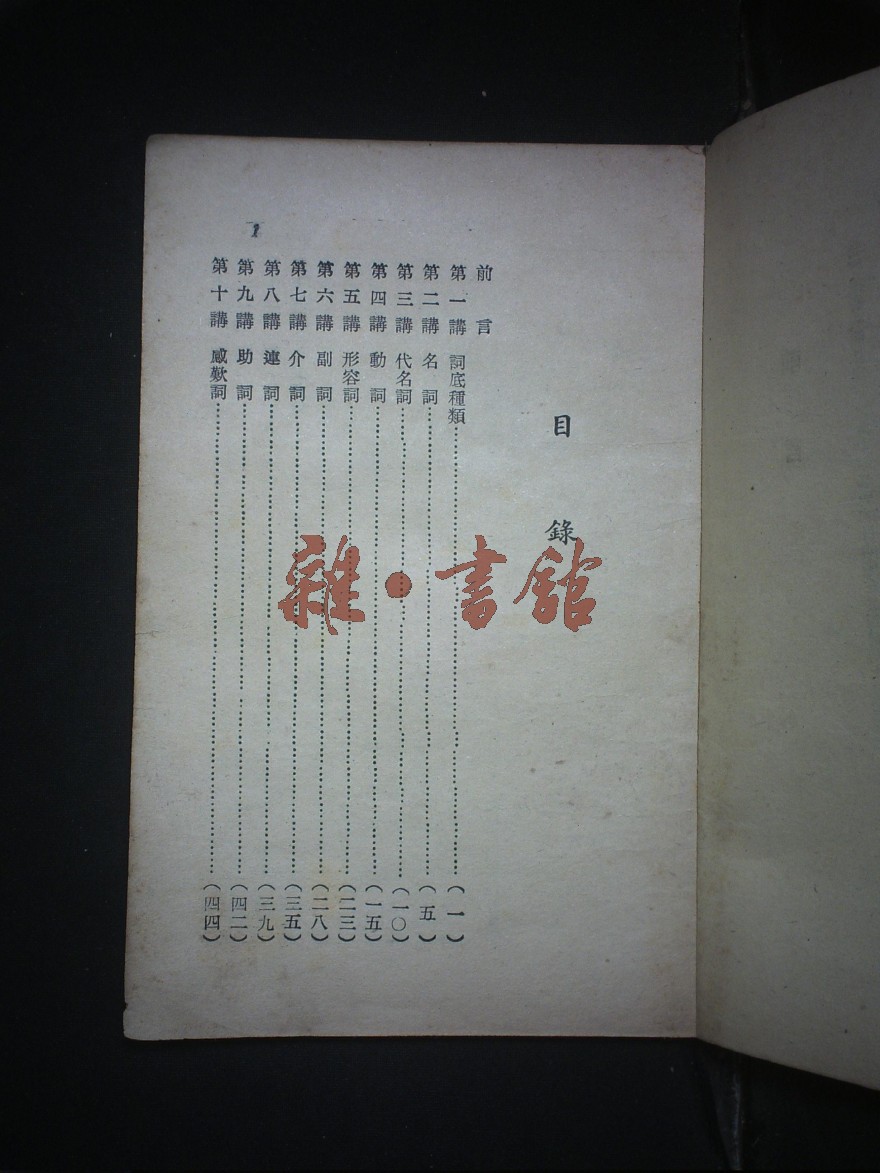 目錄
前言
第一講 詞底種類……(一)
第二講 名詞……(五)
第三講 代名詞……(一〇)
第四講 動詞……(一五)
第五講 形容詞……(二三)
第六講 副詞……(二八)
第七講 介詞……(三五)
第八講 連詞……(三九)
第九講 助詞……(四二)
第十講 感歎詞……(四四)
1
雜·書館